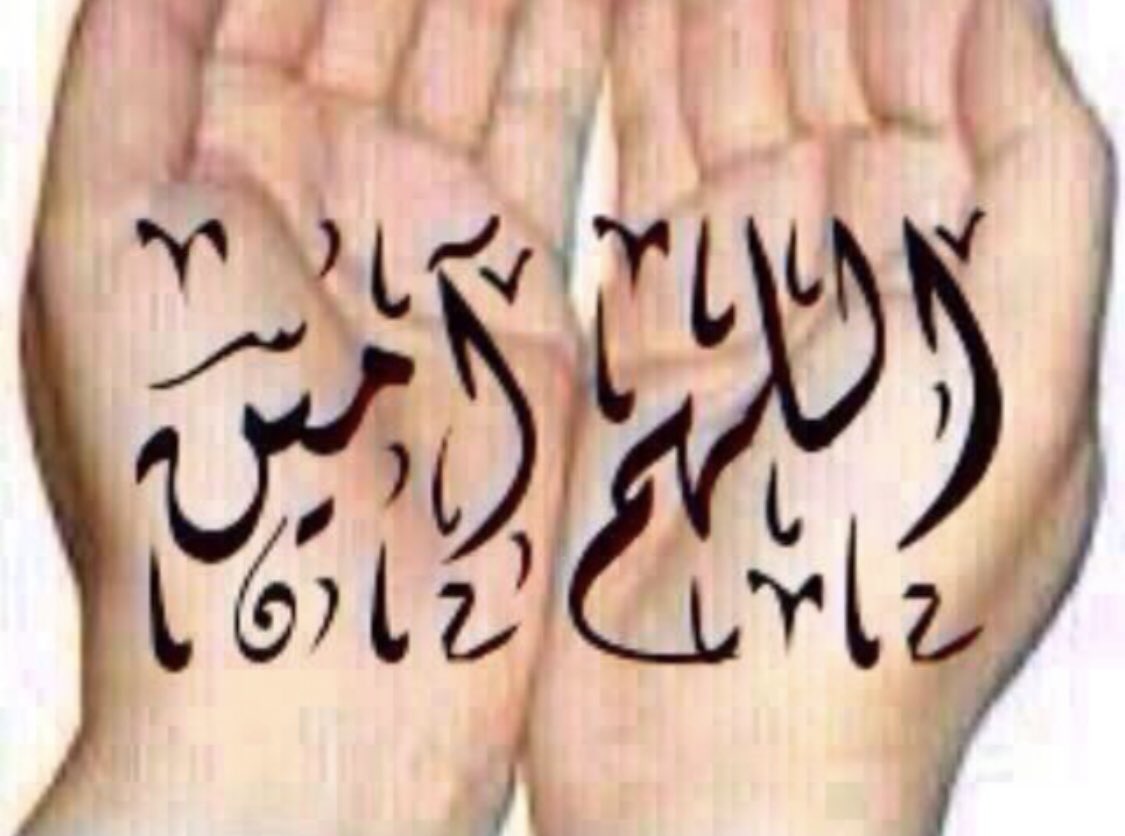 اللهم آمين